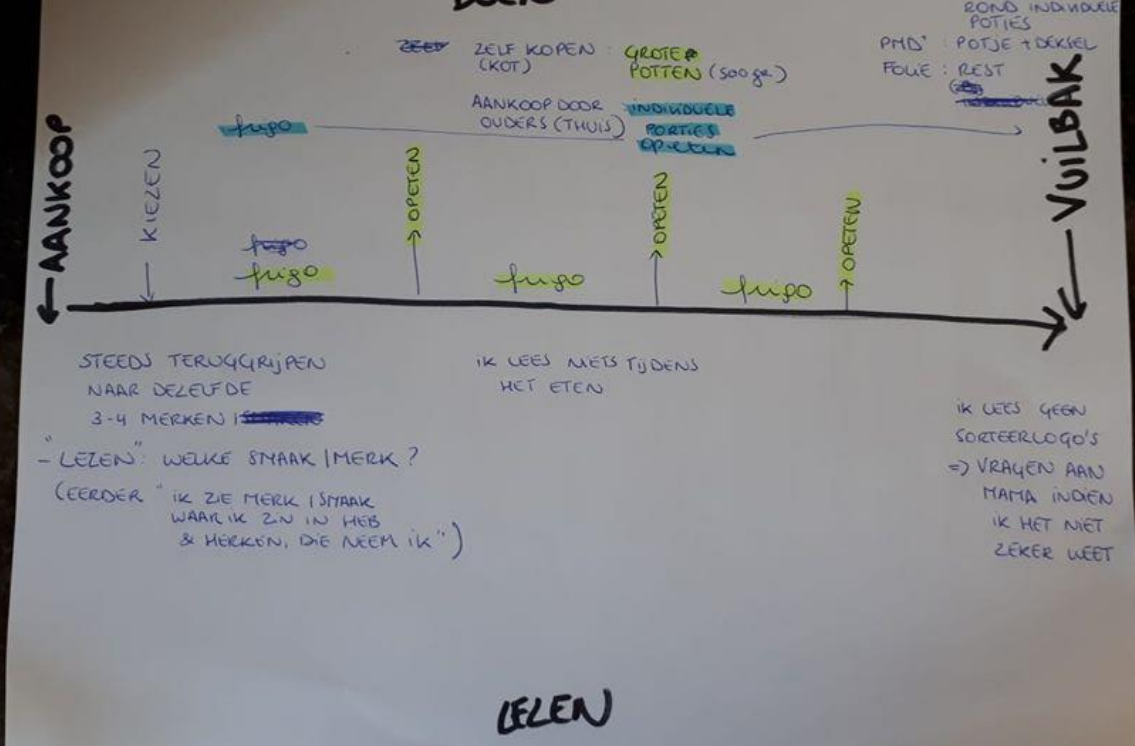 ROND INDIVIDUELE
POTJES
PMD: POTJE + DEKSEL
FOLIE: REST
ZELF KOPEN: GROTE
(KOT) POTTEN (500 gr)
AANKOOP DOOR INDIVIDUELE
OUDERS (THUIS) PORTIES
opeten
frigo
← AANKOOP
KIEZEN
→ OPETEN
→ OPETEN
→ OPETEN
← VUILBAK
frigo
frigo
frigo
frigo
STEEDS TERUGGRIJPEN
NAAR DEZELFDE
3-4 MERKEN
- "LEZEN": WELKE SMAAK / MERK?
(EERDER "IK ZIE MERK / SMAAK
WAAR IK ZIN IN HEB
& MERKEN, DIE NEEM IK")
IK LEES NIETS TIJDENS
HET ETEN
IK LEES GEEN
SORTEERLOGO'S
=> VRAGEN AAN
MAMA INDIEN
IK HET NIET
ZEKER WEET
LEZEN